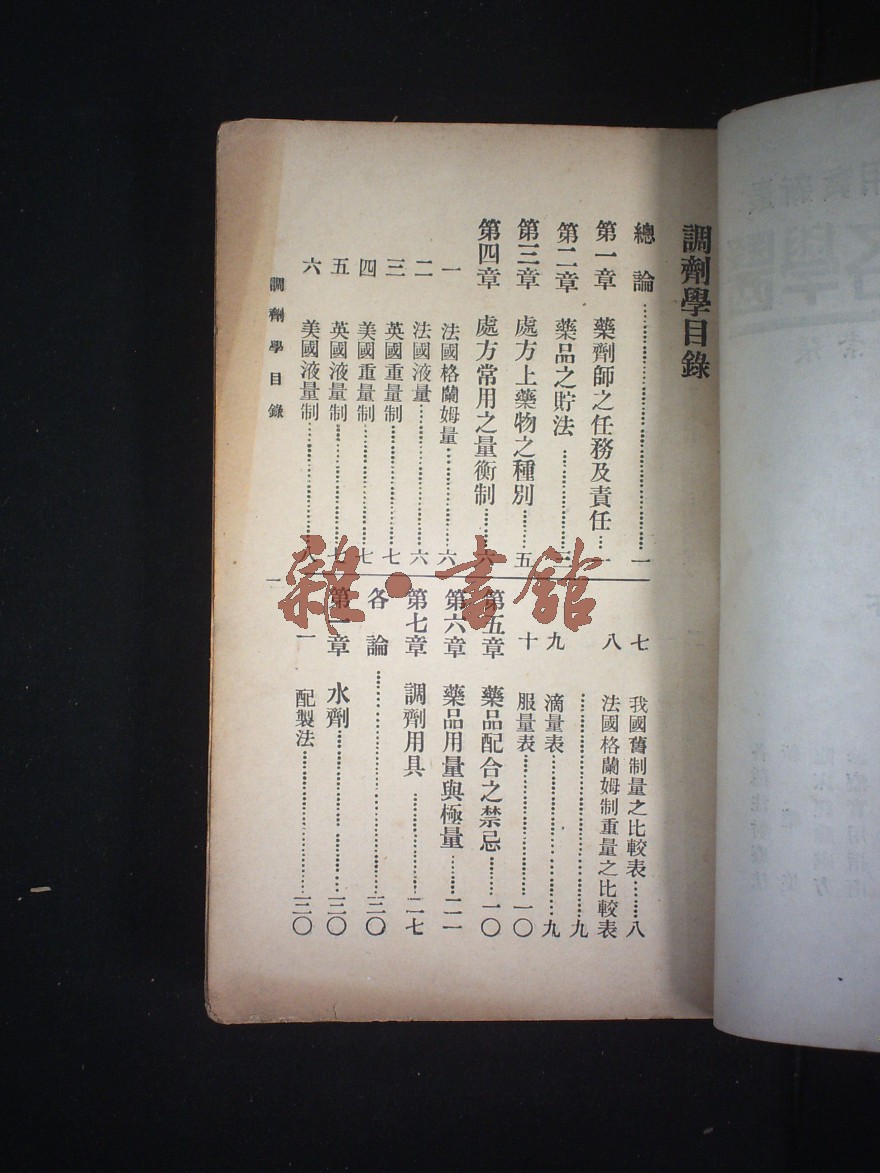 調劑學目錄
總論……一
第一章　藥劑師之任務及責任……一
第二章　藥品之貯法……三
第三章　處方上藥物之種別……五
第四章　處方常用之量衡制……六
一　法國格蘭姆量……六
二　法國液量……六
三　英國重量制……七
四　美國重量制……七
五　英國液量制……七
六　美國液量制……八
七　我國舊制量之比較表……八
八　法國格蘭姆制重量之比較表
……九
九　滴量表……九
十　服量表……一〇
第五章　藥品配合之禁忌……一〇
第六章　藥品用量與極量……二一
第七章　調劑用具……二七
各論……三〇
第一章　水劑……三〇
一　配製法……三〇
調劑學目錄
一
雜·書館